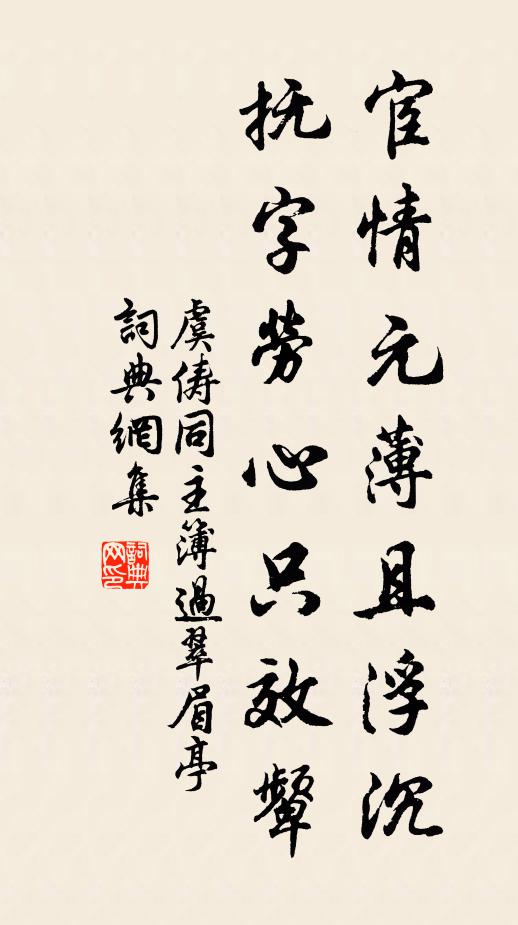 宦情元薄且浮沉
抚字劳心只效颦
虞俦同主簿過翠眉亭
詞典網集
詞典网印